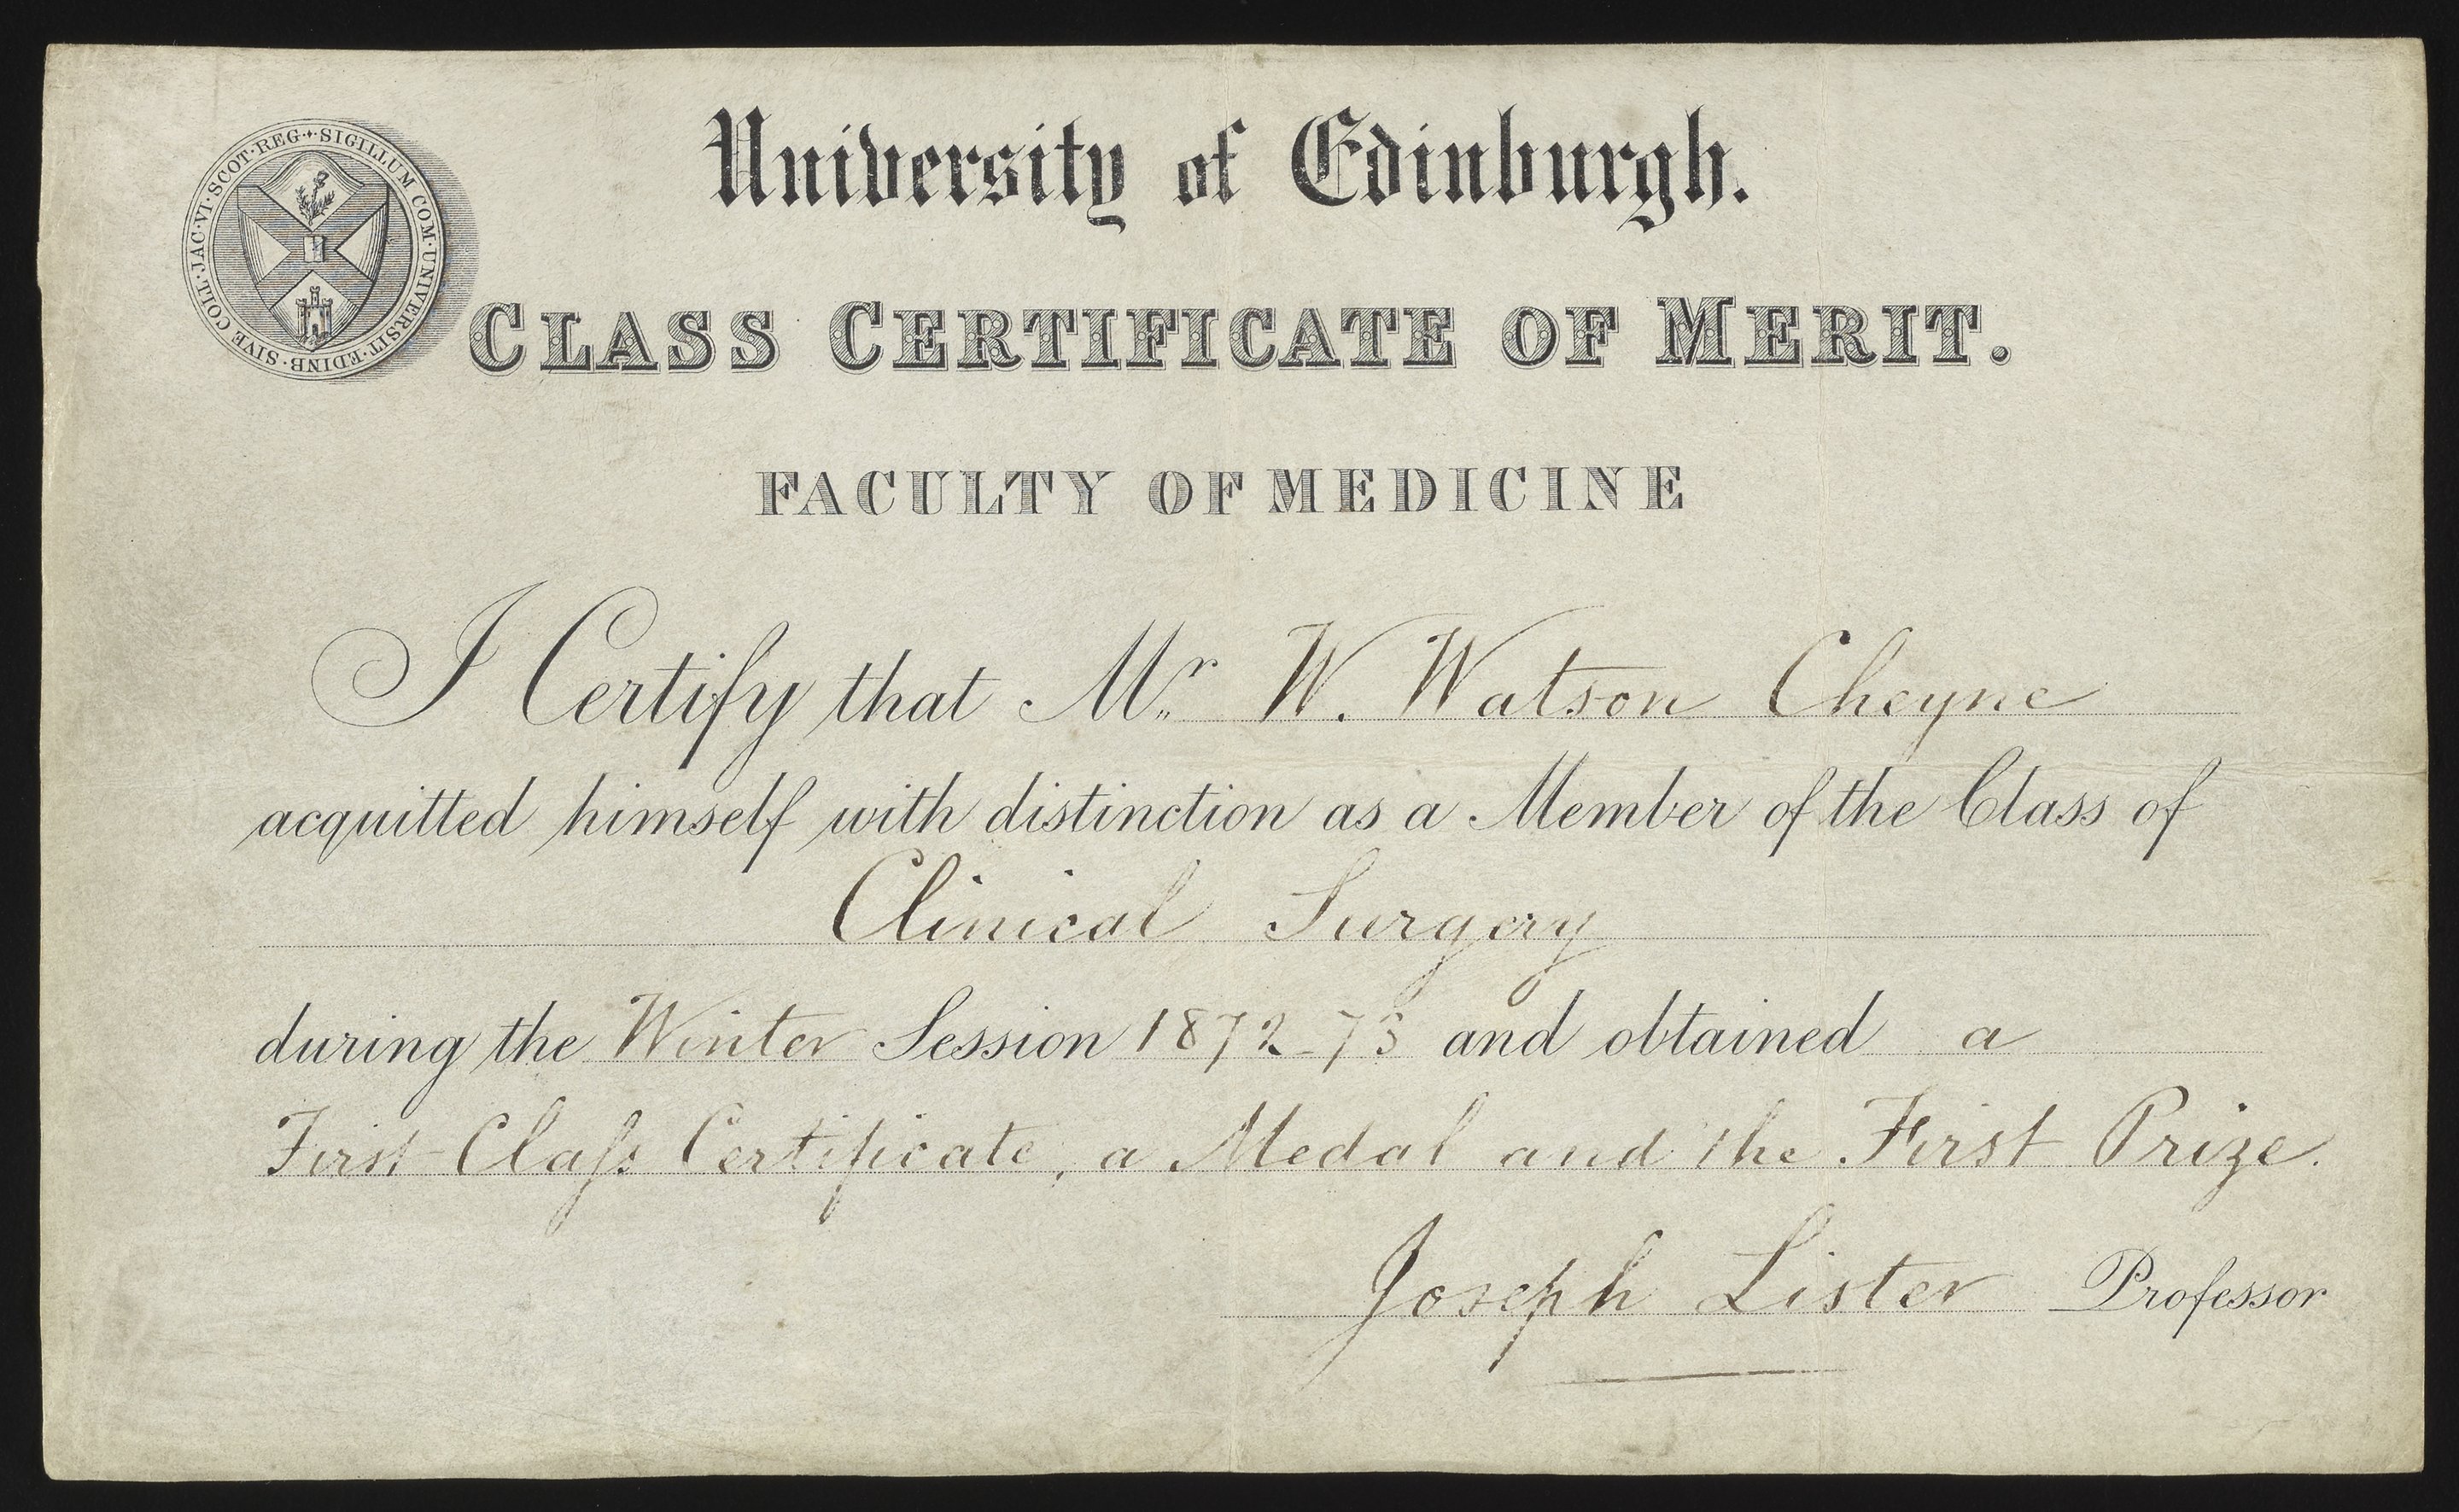 SIGILLUM COM·UNIVERSIT·EDINB·SIVE COLL·JAC·VI·SCOT·REG·
University of Edinburgh.
CLASS CERTIFICATE OF MERIT.
FACULTY OF MEDICINE
I Certify that Mr. W. Watson Cheyne
acquitted himself with distinction as a Member of the Class of
Clinical Surgery
during the Winter Session 1872-73 and obtained a
First-Claſs Certificate, a Medal and the First Prize.
Joseph Lister Professor